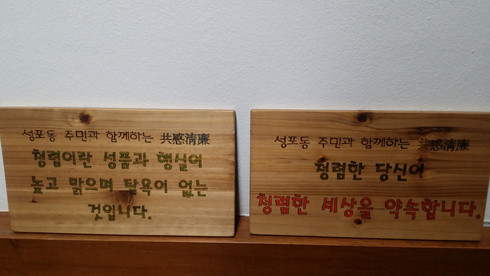 성포동 주민과 함께하는 共感淸廉
청렴이란 성품과 행실이
높고 맑으며 탐욕이 없는
것입니다.
성포동 주민과 함께하는 共感淸廉
청렴한 당신이
청렴한 세상을 약속합니다.